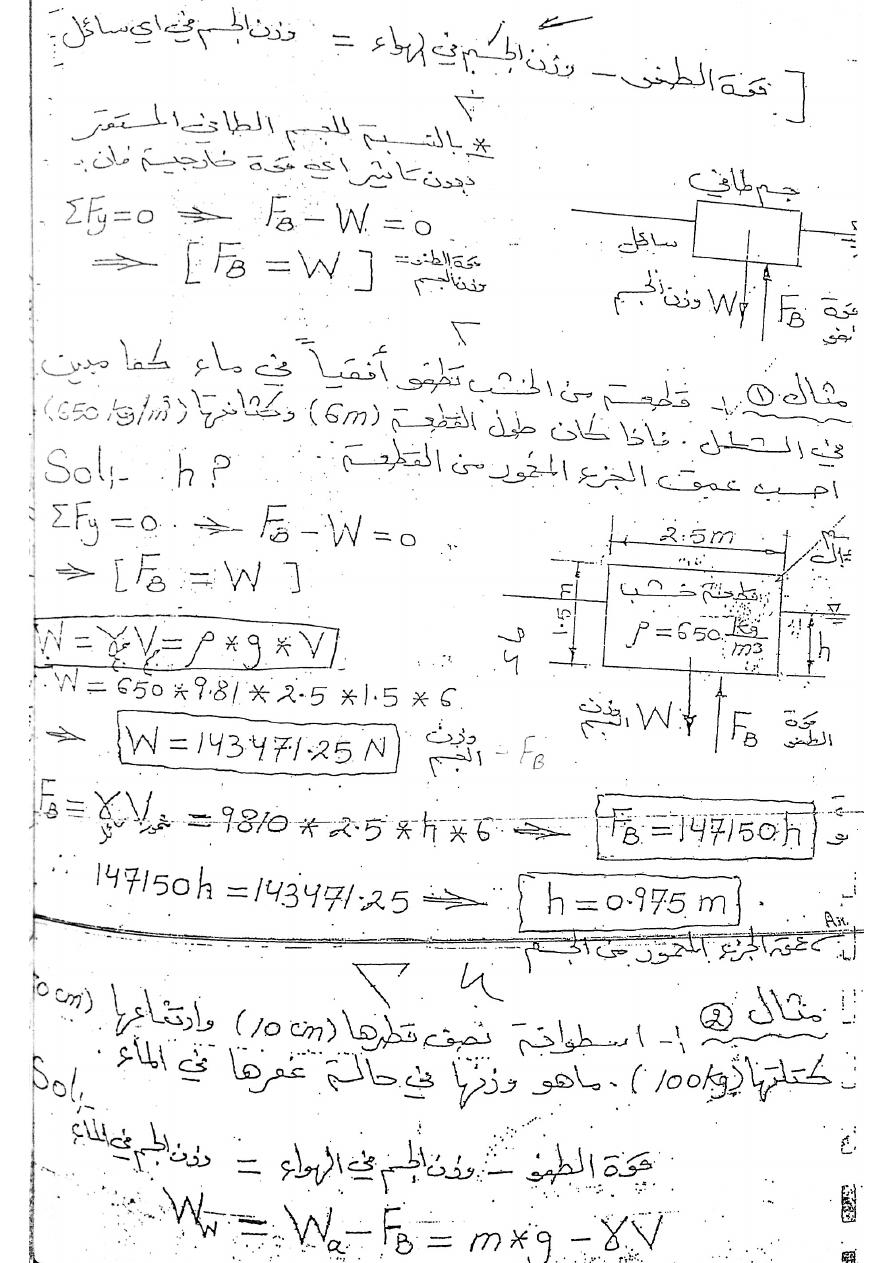 [ وزن الجسم في اي سائل = وزن الجسم في الهواء - قوة الطفو ]
* بالنسبة للجسم الطافي المستقر
بدون تاثير اي قوة خارجية فان :-
جسم طافي
ΣFy=0 ⇒ FB - W = 0
سائل
⇒ [ FB = W ] قوة الطفو = وزن الجسم
وزن الجسم W
FB قوة
مثال ① :- قطعة من الخشب تطفو أفقياً في ماء كما مبين
في الشكل . فاذا كان طول القطعة (6m) وكثافتها (650 kg/m³)
احسب عمق الجزء المغمور من القطعة
Sol:- h ?
ΣFy=0 ⇒ FB - W = 0
⇒ [ FB = W ]
2.5m
1.5m
قطعة خشب
ρ=650 kg/m3
h
W وزن الجسم
FB قوة الطفو
W = γ V = ρ * g * V
∴ W = 650 * 9.81 * 2.5 * 1.5 * 6
⇒ W = 143471.25 N وزن الجسم - FB
FB = γ V = 9810 * 2.5 * h * 6 ⇒ FB = 147150 h
∴ 147150 h = 143471.25 ⇒ h = 0.975 m . An.
عمق الجزء المغمور من الجسم
مثال ② :- اسطوانة نصف قطرها (10 cm) وارتفاعها (0 cm
كتلتها (100kg) . ماهو وزنها في حالة غمرها في الماء .
Sol:
وزن الجسم في الماء = وزن الجسم في الهواء - قوة الطفو
Ww = Wa - FB = m * g - γV